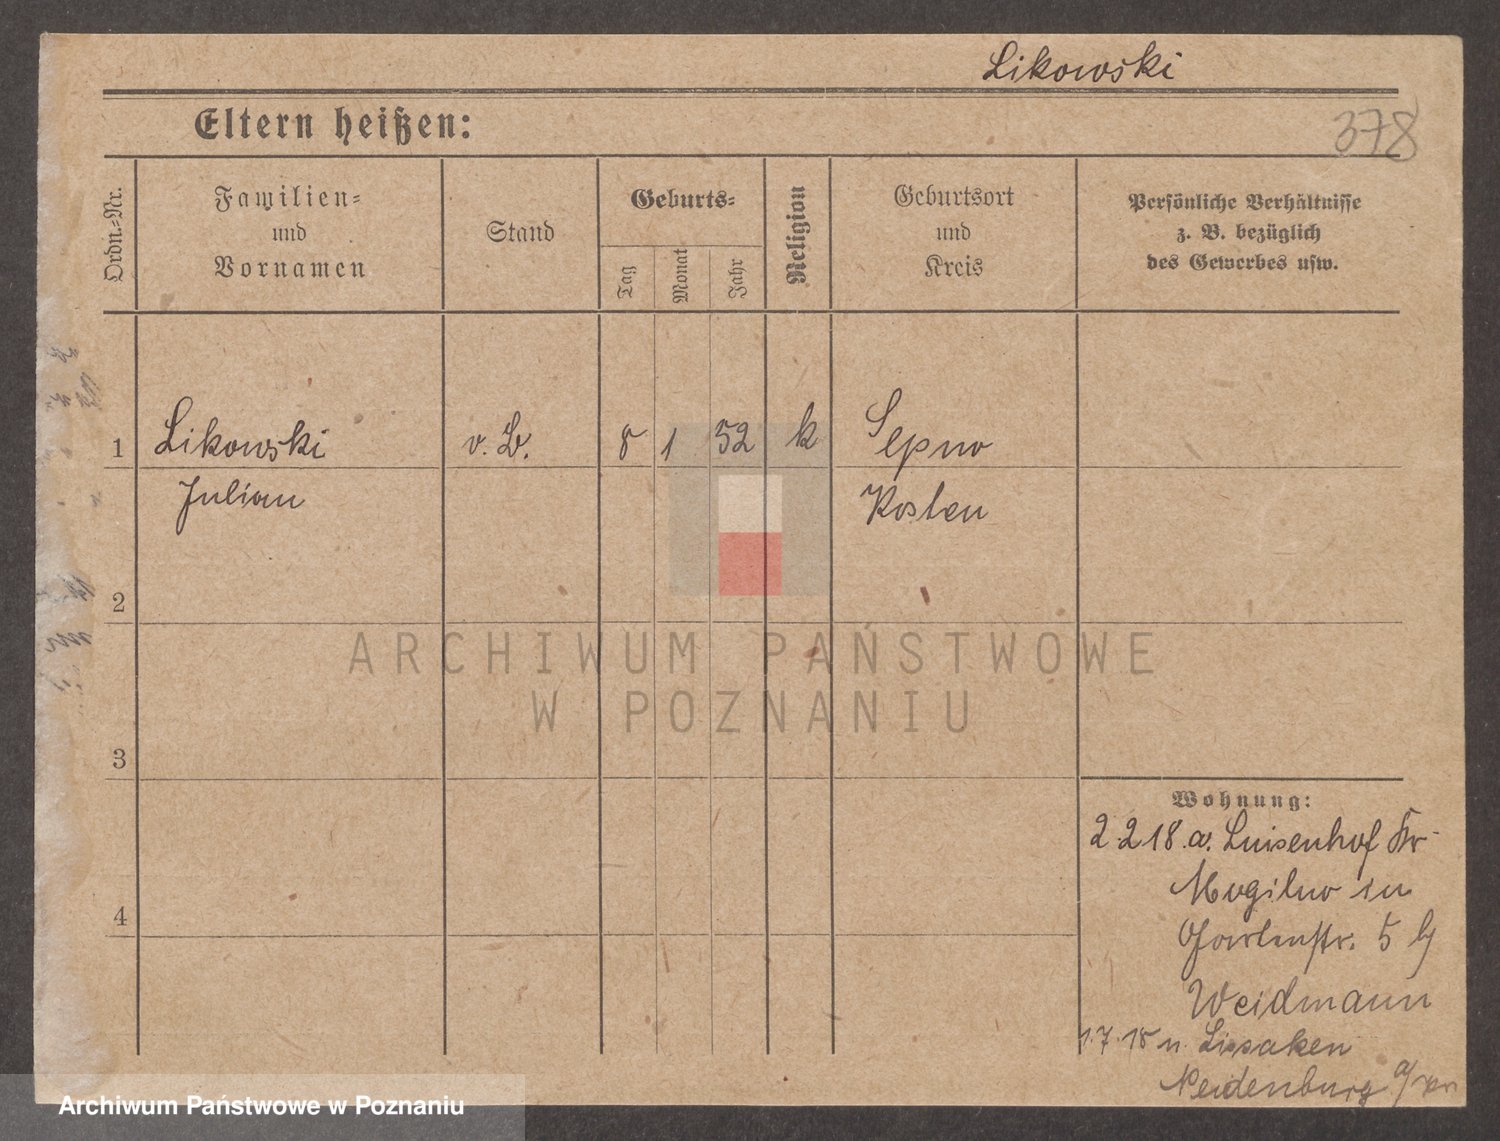 Likowski
Eltern heißen:
378
Ordn.-Nr.
Familien-
und
Vornamen
Stand
Geburts-
Tag
Monat
Jahr
Religion
Geburtsort
und
Kreis
Persönliche Verhältnisse
z. B. bezüglich
des Gewerbes usw.
1 Likowski v. L. 8 1 52 k Sepno
Julian Kosten
2
3
4
Wohnung:
2.2.18. a. Luisenhof Kr
Mogilno in
Gartenstr. 5 b/
Weidmann
1.7.18 n. Lissaken
Neidenburg
ARCHIWUM PAŃSTWOWE
W POZNANIU
Archiwum Państwowe w Poznaniu